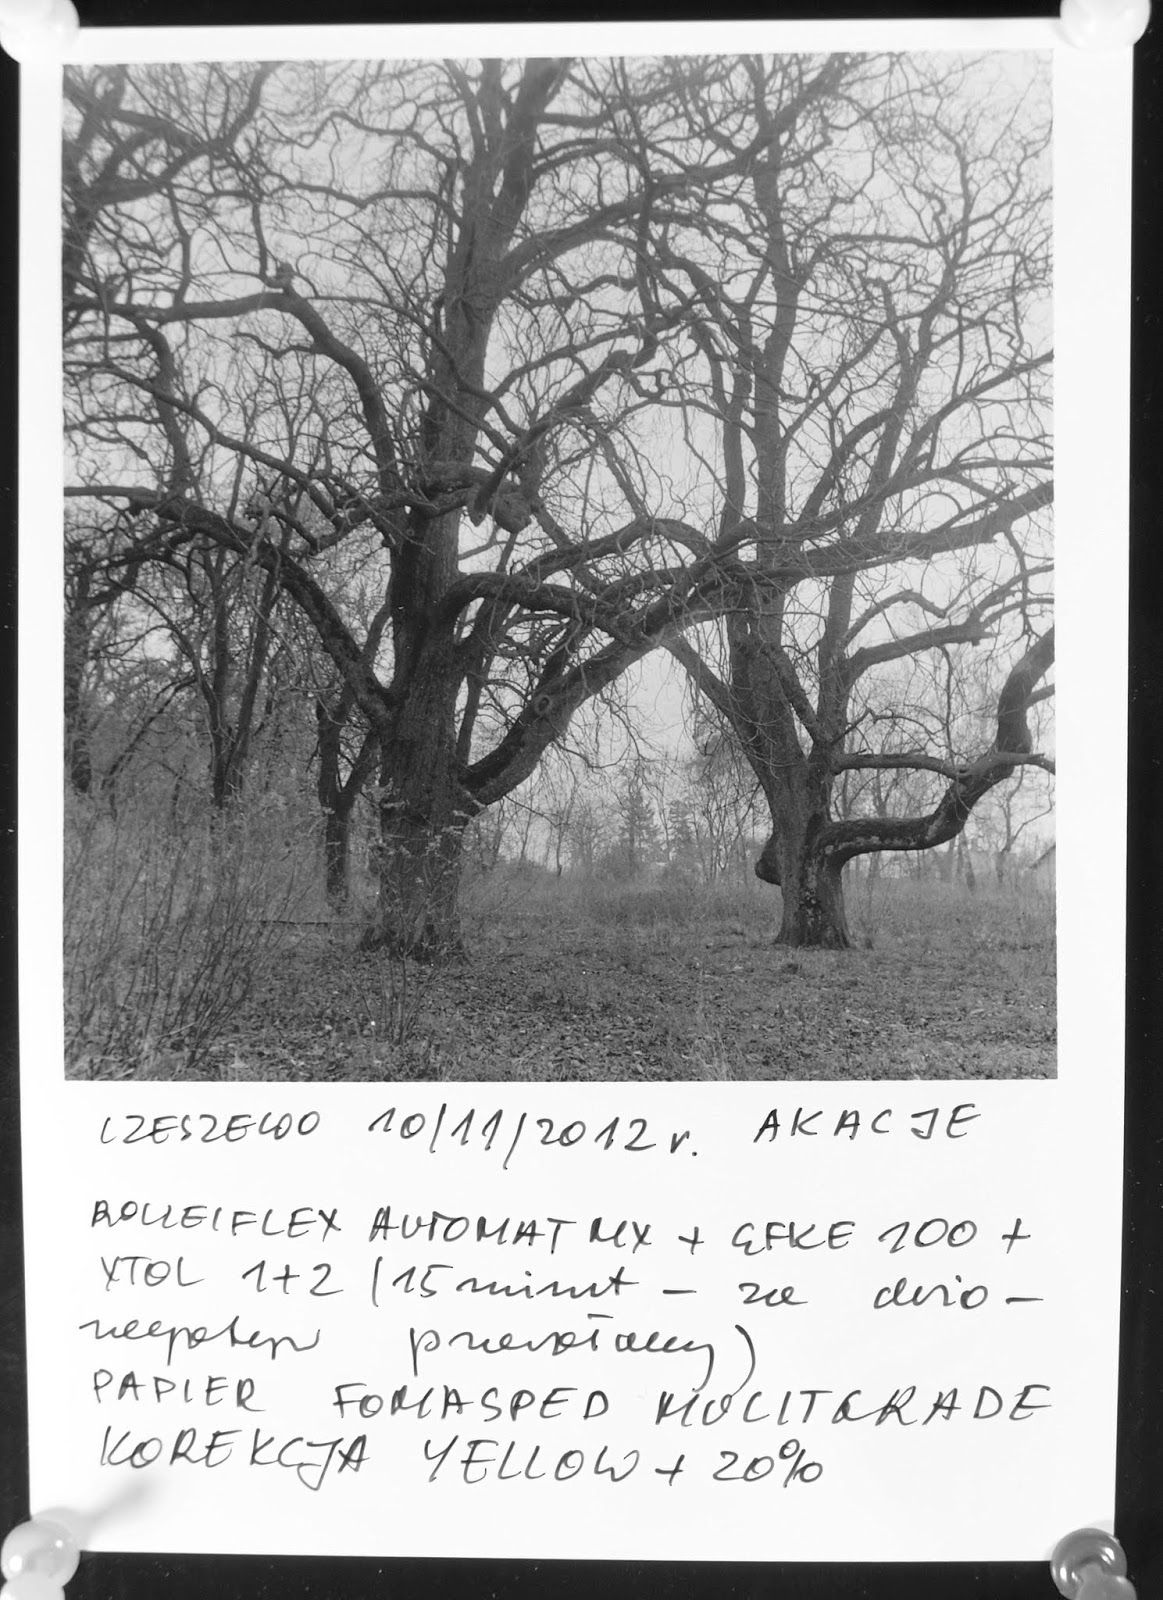 CZESZEWO 10/11/2012 r. AKACJE
ROLLEIFLEX AUTOMAT MX + EFKE 100 +
XTOL 1+2 (15 minut - za dużo -
negatyw przewołany)
PAPIER FOMASPED MULITGRADE
KOREKCJA YELLOW + 20%